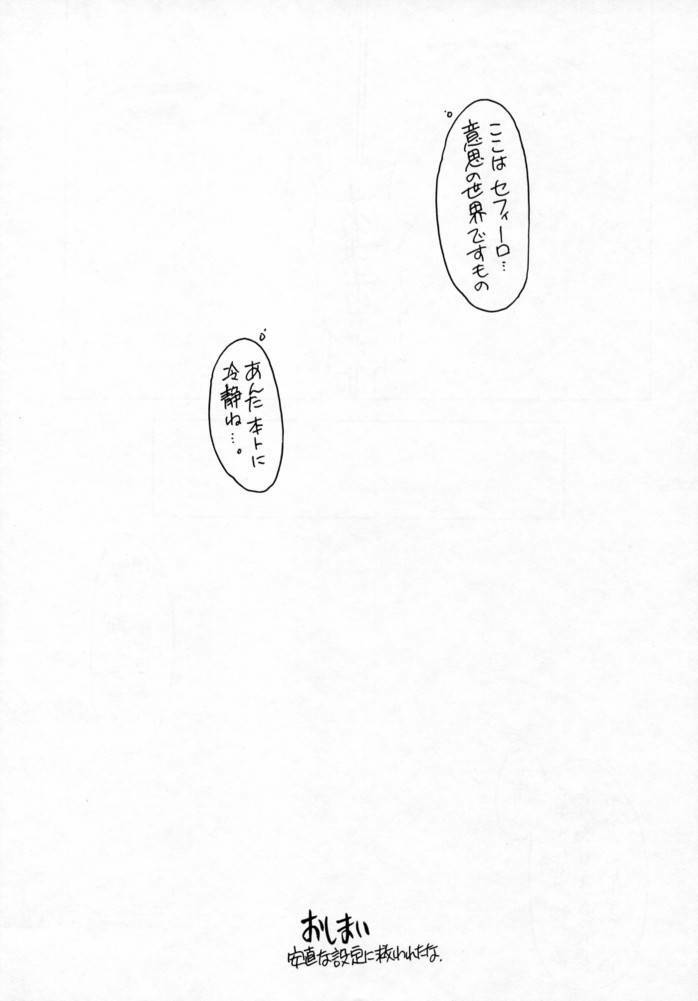 ここは セフィーロ…
意思の世界ですもの
あんた 本トに
冷静ね…。
おしまい
安直な設定に救われたな.